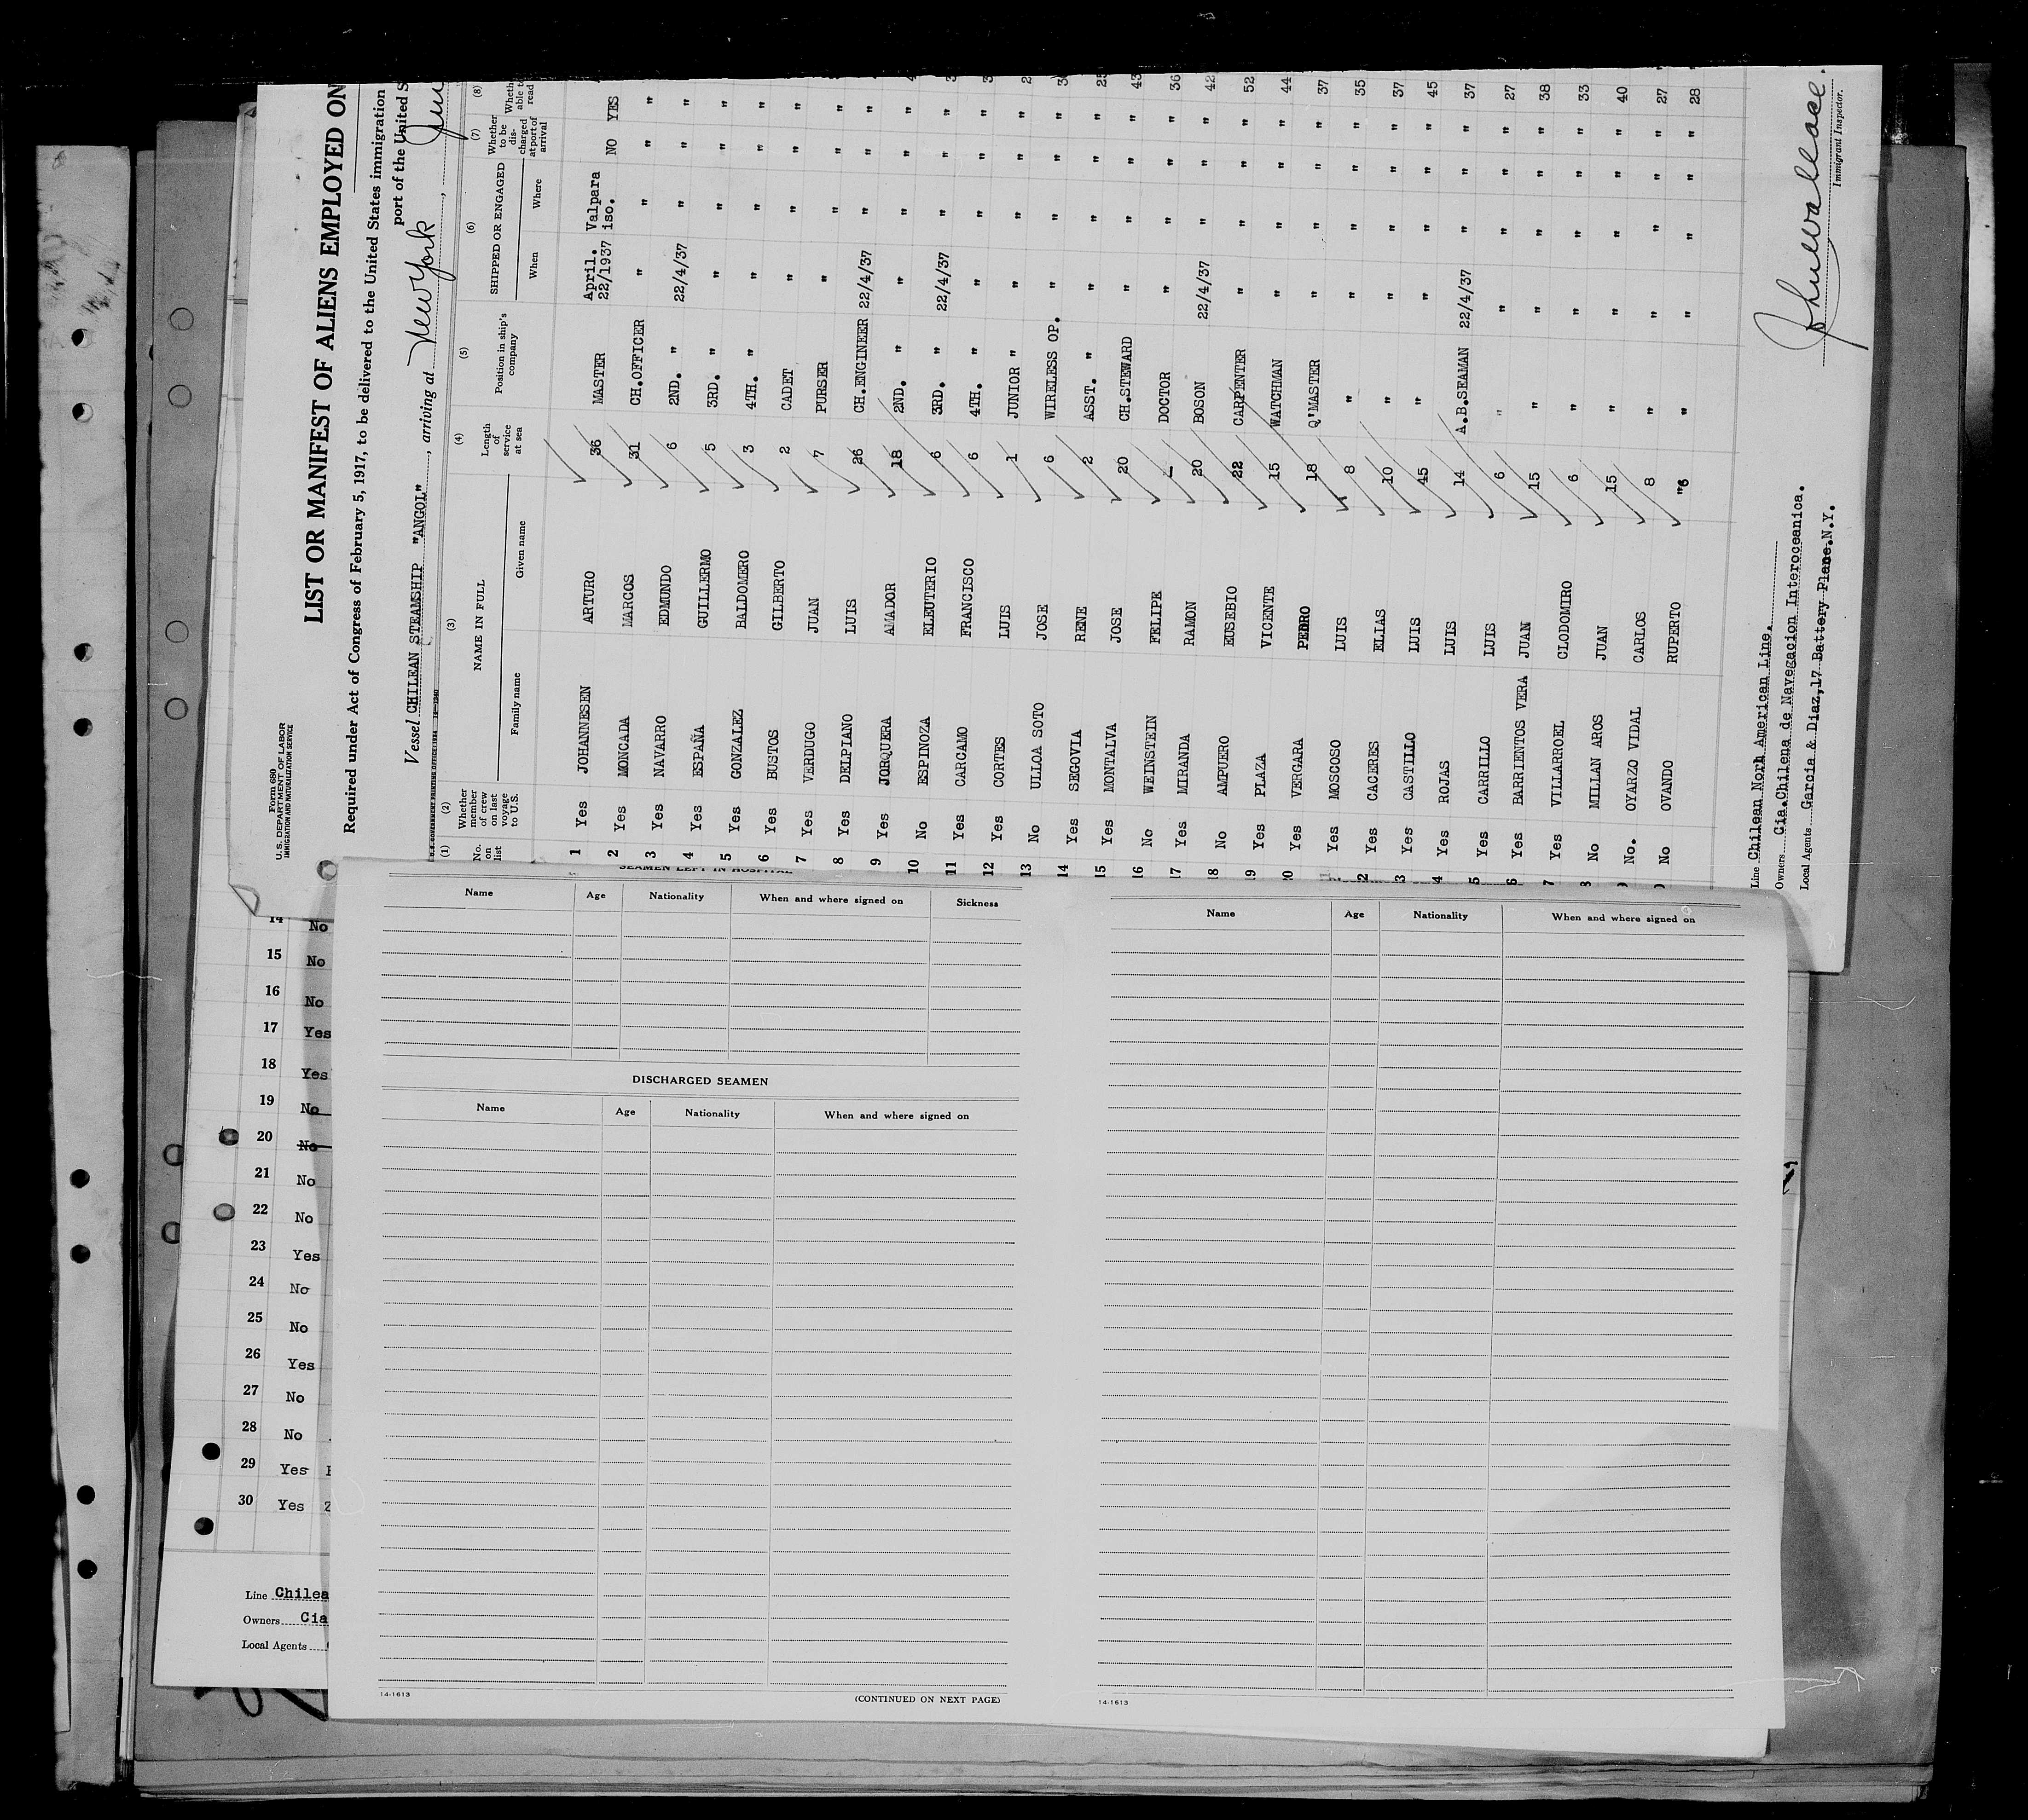 Form 680
U.S. DEPARTMENT OF LABOR
IMMIGRATION AND NATURALIZATION SERVICE
LIST OR MANIFEST OF ALIENS EMPLOYED ON
Required under Act of Congress of February 5, 1917, to be delivered to the United States immigration
port of the United S
Vessel CHILEAN STEAMSHIP "ANGOL", arriving at New York, Jun
(1) (2) (3) (4) (5) (6) (7) (8)
No. on list
Whether member of crew on last voyage to U.S.
NAME IN FULL
Family name Given name
Length of service at sea
Position in ship's company
SHIPPED OR ENGAGED
When Where
Whether to be discharged at port of arrival
Wheth able t read
1 Yes JOHANNESEN ARTURO 36 MASTER April. 22/1937 Valpara iso. NO YES
2 Yes MONCADA MARCOS 31 CH.OFFICER " " " "
3 Yes NAVARRO EDMUNDO 6 2ND. " 22/4/37 " " "
4 Yes ESPAÑA GUILLERMO 5 3RD. " " " " "
5 Yes GONZALEZ BALDOMERO 3 4TH. " " " " "
6 Yes BUSTOS GILBERTO 2 CADET " " " "
7 Yes VERDUGO JUAN 7 PURSER " " " "
8 Yes DELPIANO LUIS 26 CH.ENGINEER 22/4/37 " " "
9 Yes JORQUERA AMADOR 18 2ND. " " " " "
10 No ESPINOZA ELEUTERIO 6 3RD. " 22/4/37 " " "
11 Yes CARCAMO FRANCISCO 6 4TH. " " " " "
12 Yes CORTES LUIS 1 JUNIOR " " " " " 2
13 No ULLOA SOTO JOSE 6 WIRELESS OP. " " " " 3
14 Yes SEGOVIA RENE 2 ASST. " " " " " 25
15 Yes MONTALVA JOSE 20 CH.STEWARD " " " " 43
16 No WEINSTEIN FELIPE DOCTOR " " " " 36
17 Yes MIRANDA RAMON 20 BOSON 22/4/37 " " " 42
18 No AMPUERO EUSEBIO 22 CARPENTER " " " " 52
19 Yes PLAZA VICENTE 15 WATCHMAN " " " " 44
20 Yes VERGARA PEDRO 18 Q'MASTER " " " " 37
Yes MOSCOSO LUIS 8 " " " " " 35
2 Yes CACERES ELIAS 10 " " " " " 37
3 Yes CASTILLO LUIS 45 " " " " " 45
4 Yes ROJAS LUIS 14 A.B.SEAMAN 22/4/37 " " " 37
5 Yes CARRILLO LUIS 6 " " " " " 27
6 Yes BARRIENTOS VERA JUAN 15 " " " " " 38
7 Yes VILLARROEL CLODOMIRO 6 " " " " " 33
8 No MILLAN AROS JUAN 15 " " " " " 40
9 No. OYARZO VIDAL CARLOS 8 " " " " " 27
No OVANDO RUPERTO "6 " " " " " 28
Line Chilean Norh American Line.
Owners Cia.Chilena de Navegacion Interoceanica.
Local Agents Garcia & Diaz,17 Battery Place.N.Y.
John Wallace.
Immigrant Inspector.
14 No
15 No
16 No
17 Yes
18 Yes
19 No
20 No
21 No
22 No
23 Yes
24 No
25 No
26 Yes
27 No
28 No
29 Yes
30 Yes Z
Line Chilea
Owners Cia
Local Agents
SEAMEN LEFT IN HOSPITAL
Name Age Nationality When and where signed on Sickness
DISCHARGED SEAMEN
Name Age Nationality When and where signed on
14-1613
(CONTINUED ON NEXT PAGE)
Name Age Nationality When and where signed on
14-1613